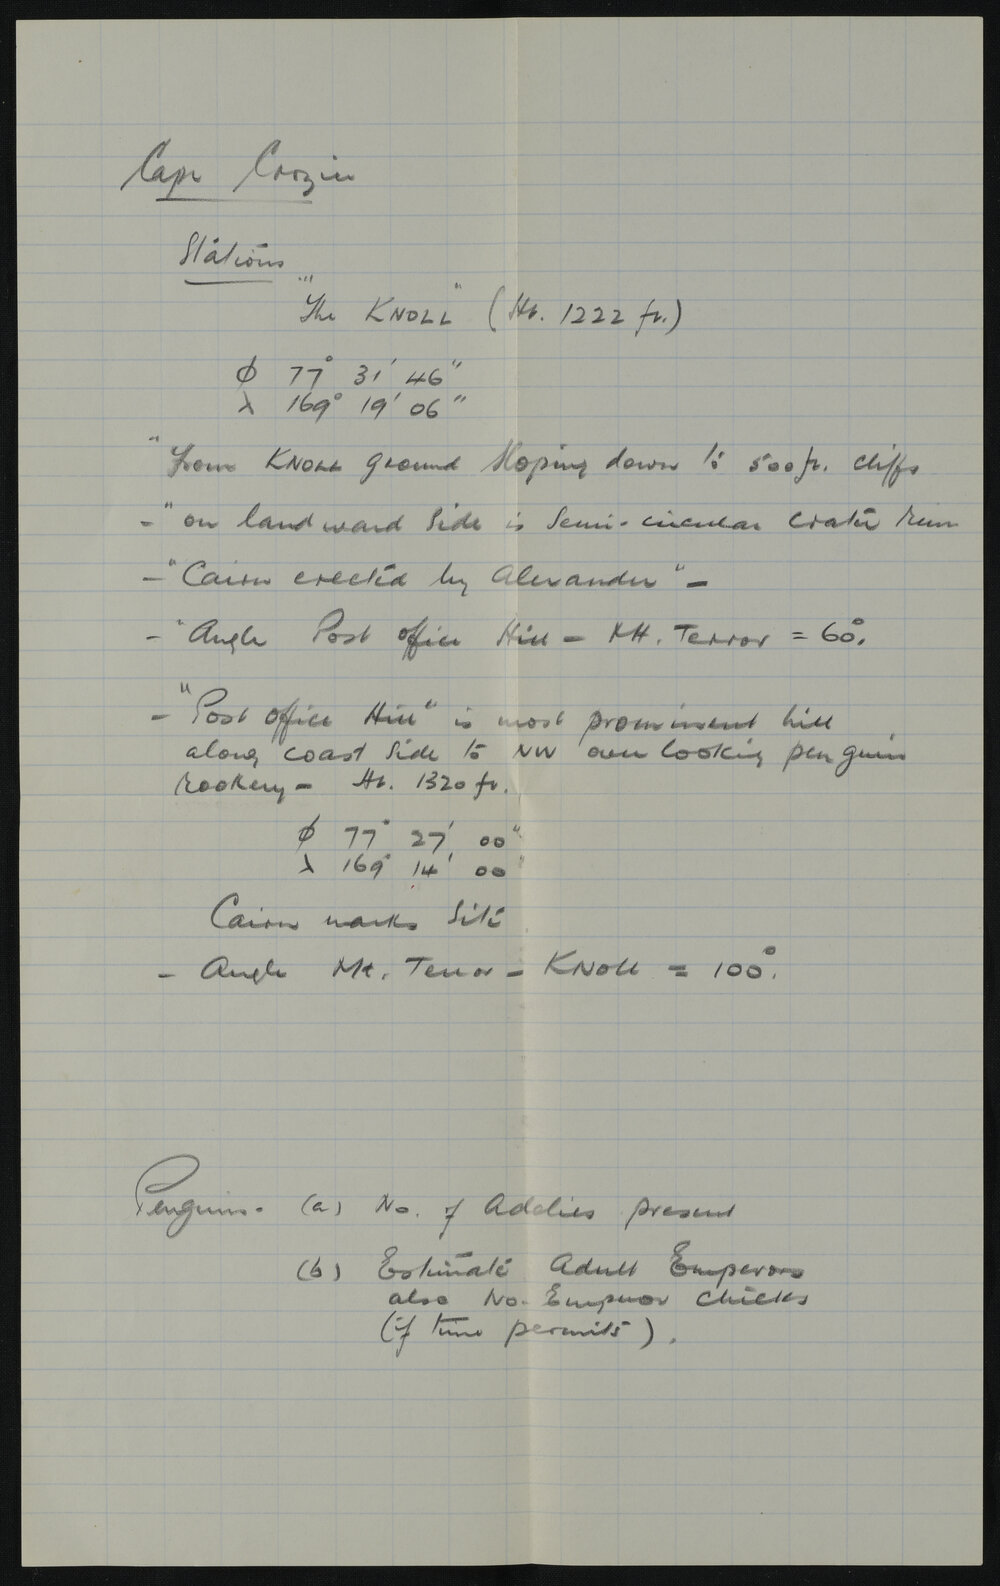 Cape Crozier
Stations
"The KNOLL" (Ht. 1222 ft.)
φ 77° 31' 46"
λ 169° 19' 06"
"From KNOLL ground sloping down to 500 ft. cliffs
- "on landward side is semi-circular crater rim
- "Cairn erected by Alexander" -
- "Angle Post office Hill - Mt. Terror = 60°.
- "Post office Hill" is most prominent hill
along coast side to NW over looking penguin
rookery - Ht. 1320 ft.
φ 77° 27' 00"
λ 169° 14' 00"
Cairn marks site
- Angle Mt. Terror - KNOLL = 100°.
Penguins - (a) No. of Adelies present
(b) Estimate Adult Emperors
also No. Emperor chicks
(if time permits).